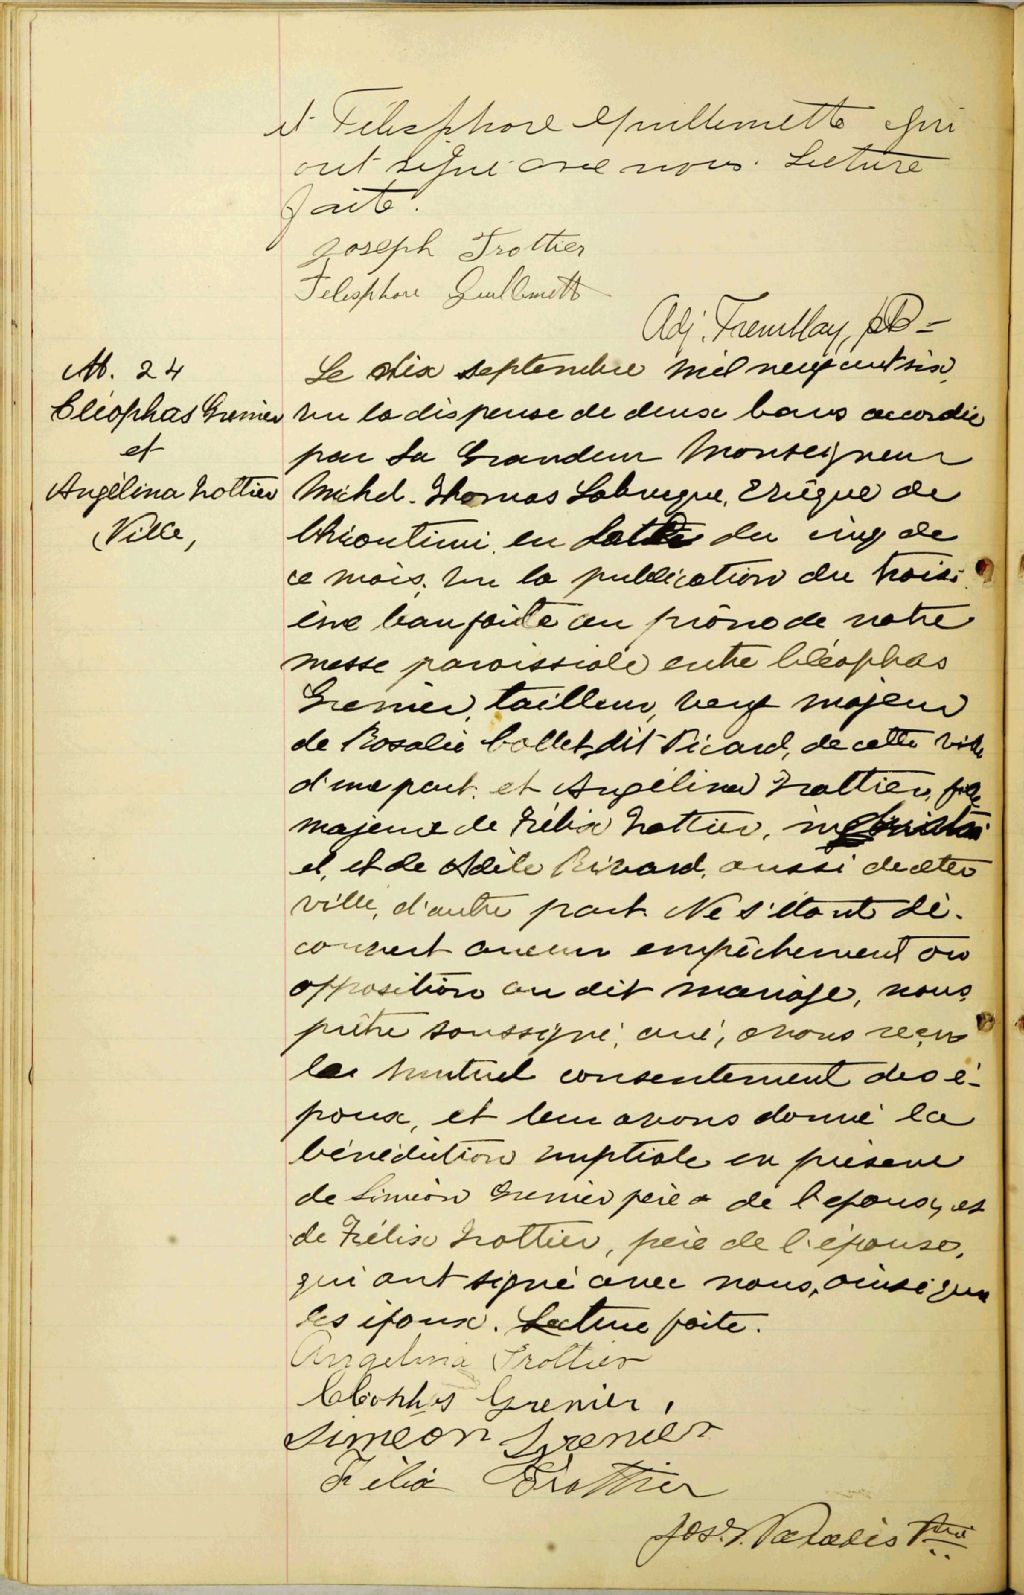 et Télesphore Guillemette qui
ont signé avec nous. Lecture
faite.
Joseph Trottier
Telesphore Guillemette
Adj. Tremblay, ptre
M. 24
Cléophas Grenier
et
Angélina Trottier
(Ville,
Le dix septembre mil neuf cent six,
vu la dispense de deux bans accordée
par Sa Grandeur Monseigneur
Michel-Thomas Labrecque, Evêque de
Chicoutimi, en date du cinq de
ce mois, vu la publication du troisi-
ème ban faite au prône de notre
messe paroissiale entre Cléophas
Grenier, tailleur, veuf majeur
de Rosalie Collet dit Picard, de cette ville
d'une part, et Angélina Trottier, fille
majeure de Félix Trottier, industri
el, et de Adèle Rivard, aussi de cette
ville, d'autre part. Ne s'étant dé-
couvert aucun empêchement ou
opposition au dit mariage, nous,
prêtre soussigné, curé, avons reçu
le mutuel consentement des é-
poux, et leur avons donné la
bénédiction nuptiale en présence
de Siméon Grenier père de l'époux, et
de Félix Trottier, père de l'épouse,
qui ont signé avec nous, ainsi que
les époux. Lecture faite.
Angelina Trottier
Cleophas Grenier,
Simeon Grenier
Félix Trottier
Jos. Paradis Ptre